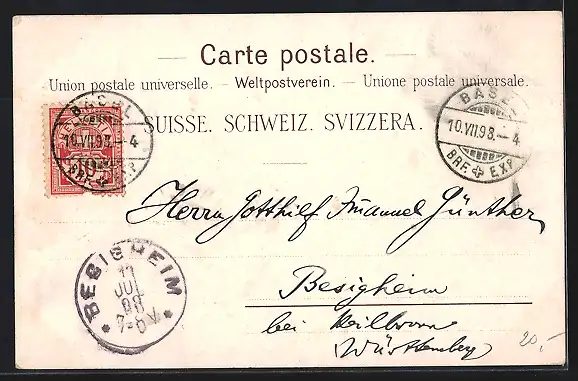 Carte postale.
Union postale universelle. — Weltpostverein. — Unione postale universale.
SUISSE. SCHWEIZ. SVIZZERA.
BASEL
10.VII.98.–4
BRF. EXP.
HELVETIA
10
BASEL
10.VII.98.–4
BRF. EXP.
Herrn Gotthilf Imanuel Günther
Besigheim
bei Heilbronn
Württemberg
BESIGHEIM
11
JUL
98
7-8V.
20,-